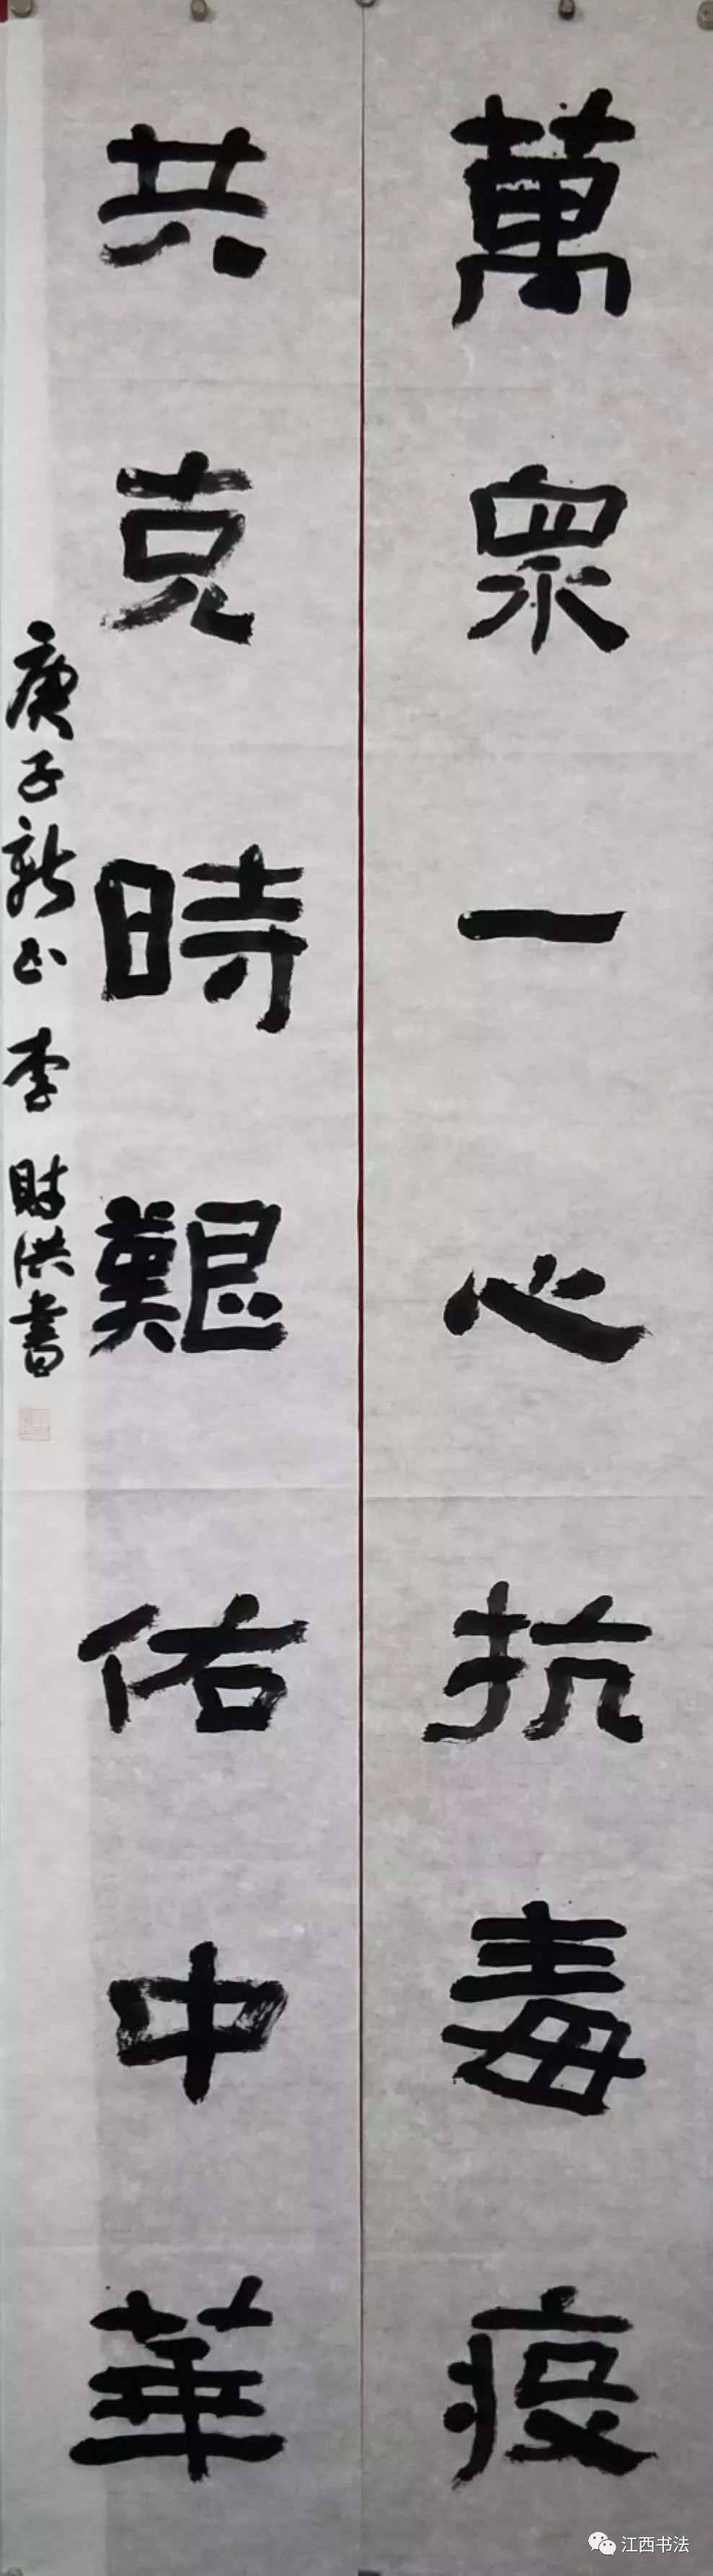 萬眾一心抗毒疫
共克時艱佑中華
庚子新正李財洪書
江西书法